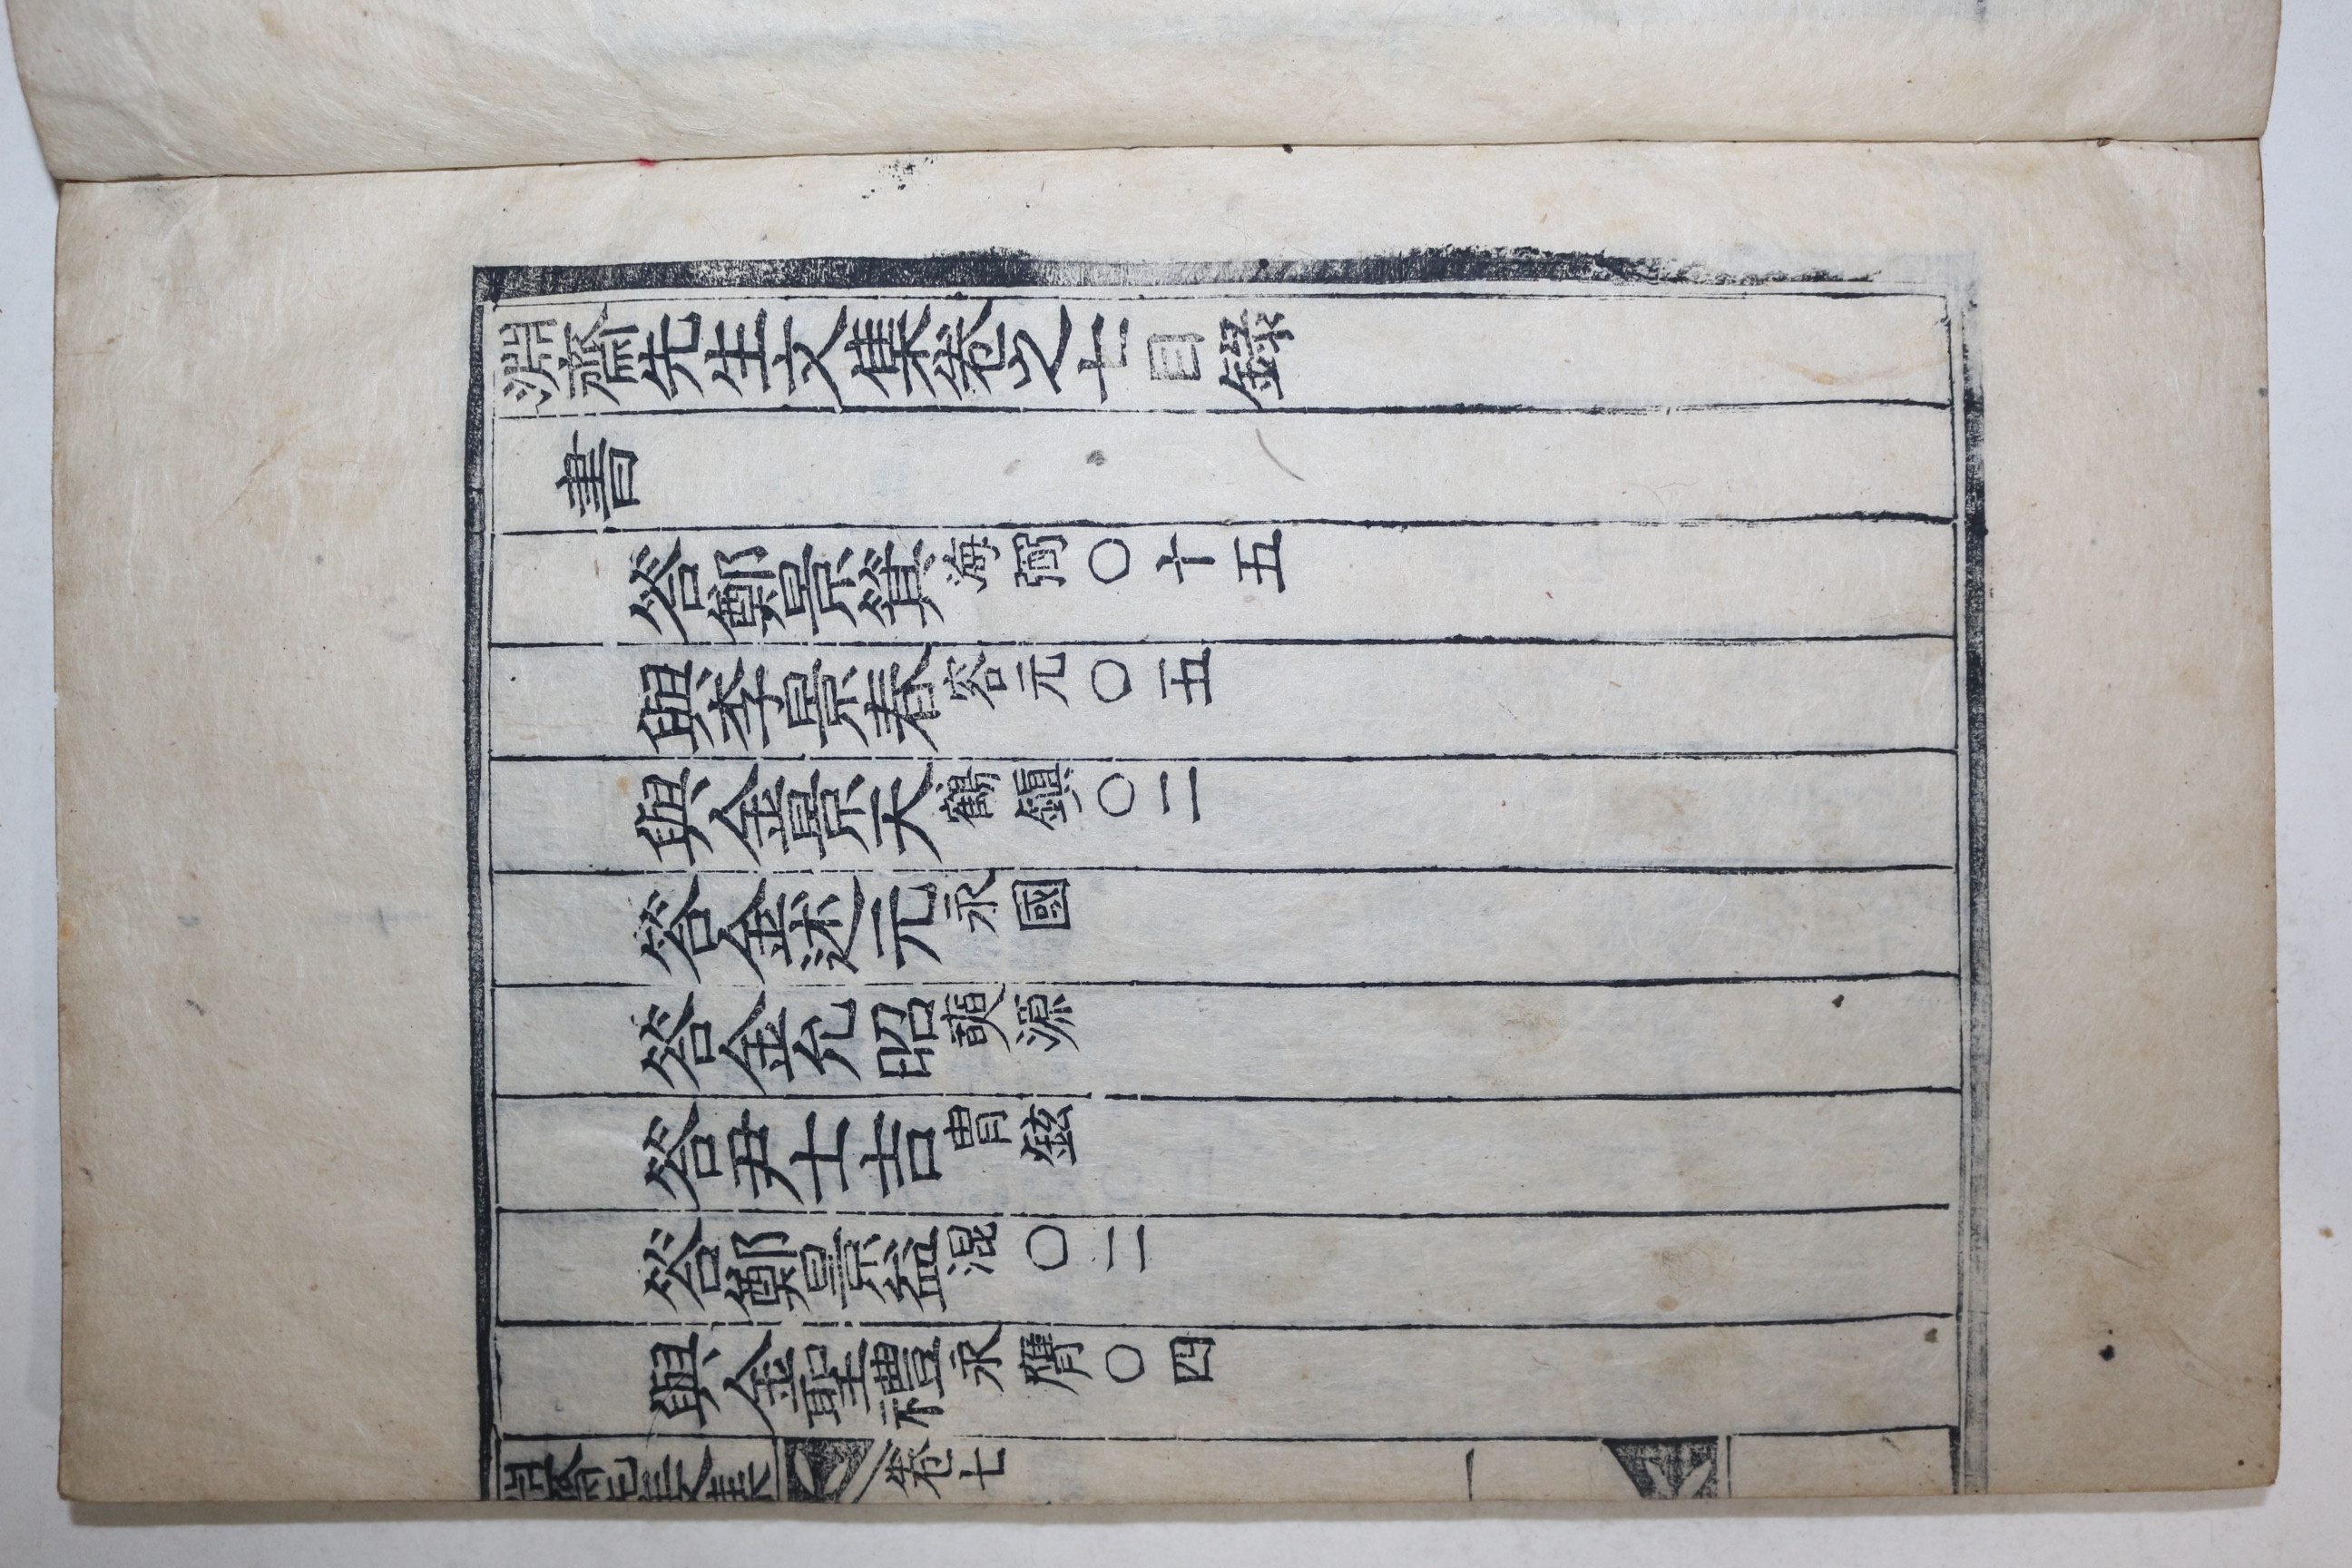 淵齋先生文集卷之七目錄
書
答鄭景箕海弼○十五
與李景春容元○五
與金景天鶴鎭○二
答金述元永國
答金允昭奭源
答尹士吉胄鉉
答鄭景益混○二
與金聖禮永膺○四
淵齋先生文集 卷七 一